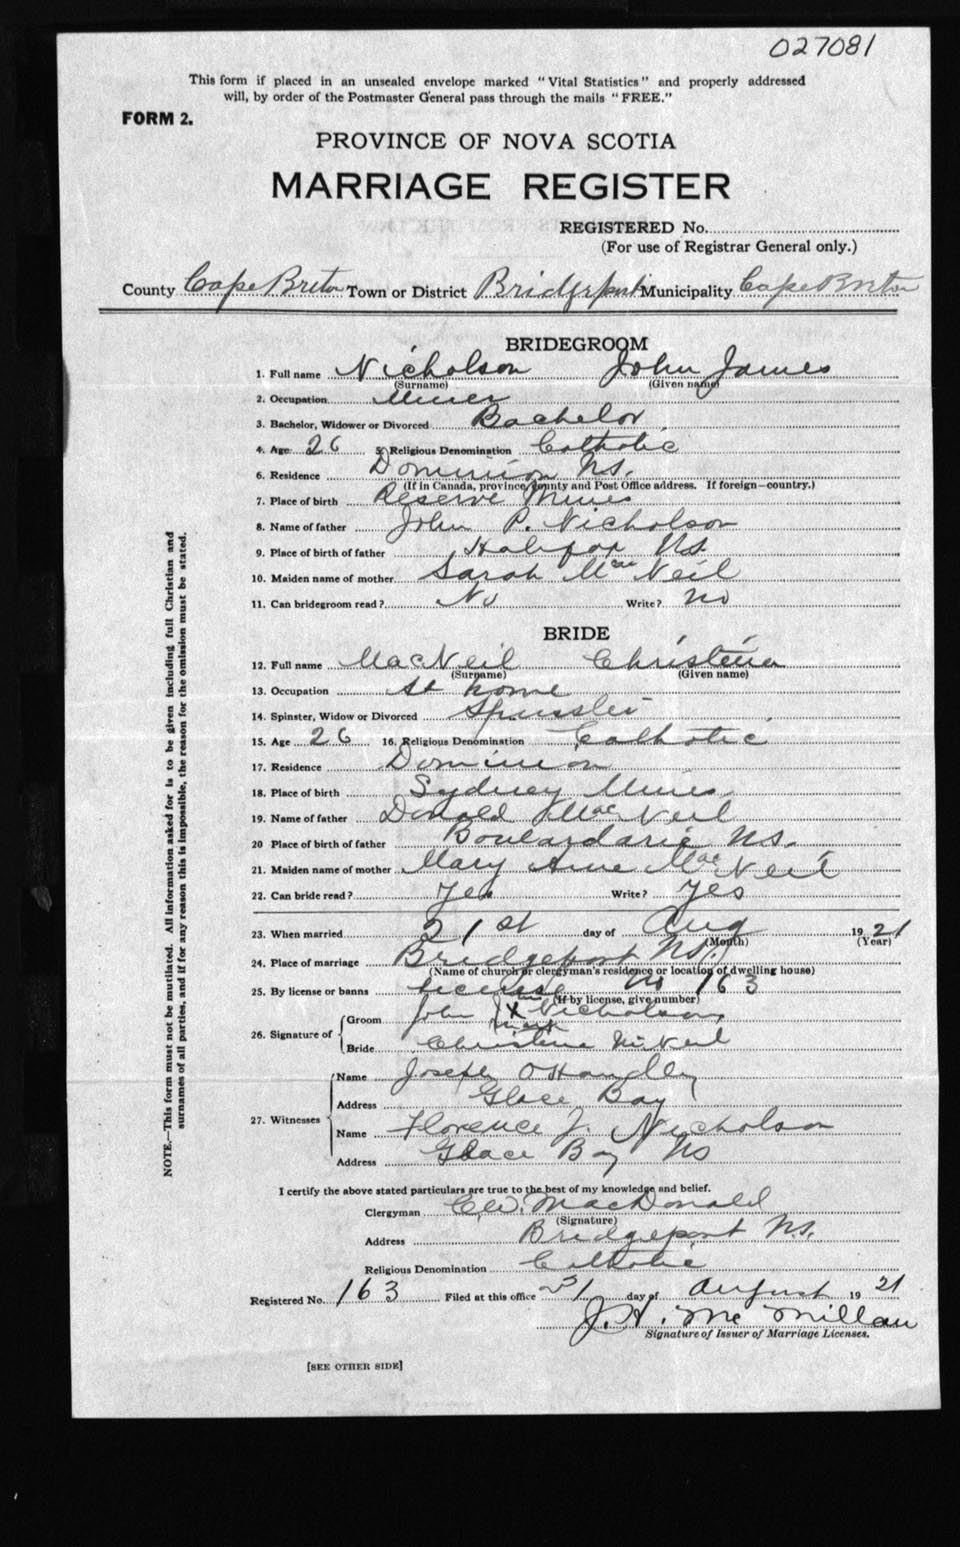 027081
This form if placed in an unsealed envelope marked "Vital Statistics" and properly addressed
will, by order of the Postmaster General pass through the mails "FREE."
FORM 2.
PROVINCE OF NOVA SCOTIA
MARRIAGE REGISTER
REGISTERED No.
(For use of Registrar General only.)
County Cape Breton Town or District Bridgeport Municipality Cape Breton
BRIDEGROOM
1. Full name Nicholson John James
(Surname) (Given name)
2. Occupation Miner
3. Bachelor, Widower or Divorced Bachelor
4. Age 26 5. Religious Denomination Catholic
6. Residence Dominion N.S.
(If in Canada, province, county and Post Office address. If foreign—country.)
7. Place of birth Reserve Mines
8. Name of father John P. Nicholson
9. Place of birth of father Halifax N.S.
10. Maiden name of mother Sarah MacNeil
11. Can bridegroom read? No Write? no
BRIDE
12. Full name MacNeil Christena
(Surname) (Given name)
13. Occupation At home
14. Spinster, Widow or Divorced Spinster
15. Age 26 16. Religious Denomination Catholic
17. Residence Dominion
18. Place of birth Sydney Mines
19. Name of father Donald MacNeil
20 Place of birth of father Boulardarie N.S.
21. Maiden name of mother Mary Anne MacNeil
22. Can bride read? Yes Write? Yes
23. When married 21st day of Aug 1921
(Month) (Year)
24. Place of marriage Bridgeport N.S.
(Name of church or clergyman's residence or location of dwelling house)
25. By license or banns License No 163
(If by license, give number)
26. Signature of Groom John J X Nicholson
mark
Bride Christine McNeil
27. Witnesses Name Joseph O'Handley
Address Glace Bay
Name Florence J. Nicholson
Address Glace Bay NS
I certify the above stated particulars are true to the best of my knowledge and belief.
Clergyman C.W. MacDonald
(Signature)
Address Bridgeport N.S.
Religious Denomination Catholic
Registered No. 163 Filed at this office 31 day of August 1921
J. H. McMillan
Signature of Issuer of Marriage Licenses.
[SEE OTHER SIDE]
NOTE.—This form must not be mutilated. All information asked for is to be given including full Christian and
surnames of all parties, and if for any reason this is impossible, the reason for the omission must be stated.